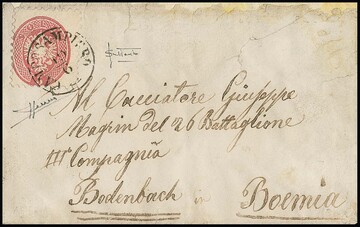 Al Cacciatore Giuseppe
Magrin del 26 Battaglione
III Compagnia
Bodenbach in Boemia